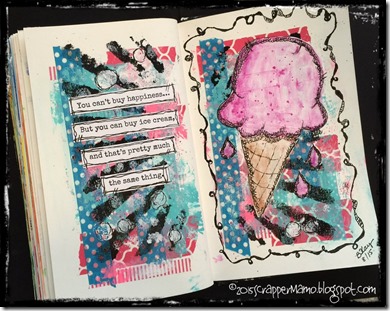 You can't buy happiness...
But you can buy ice cream,
and that's pretty much
the same thing.
8/15
©2015scrapperMamo.blogspot.com